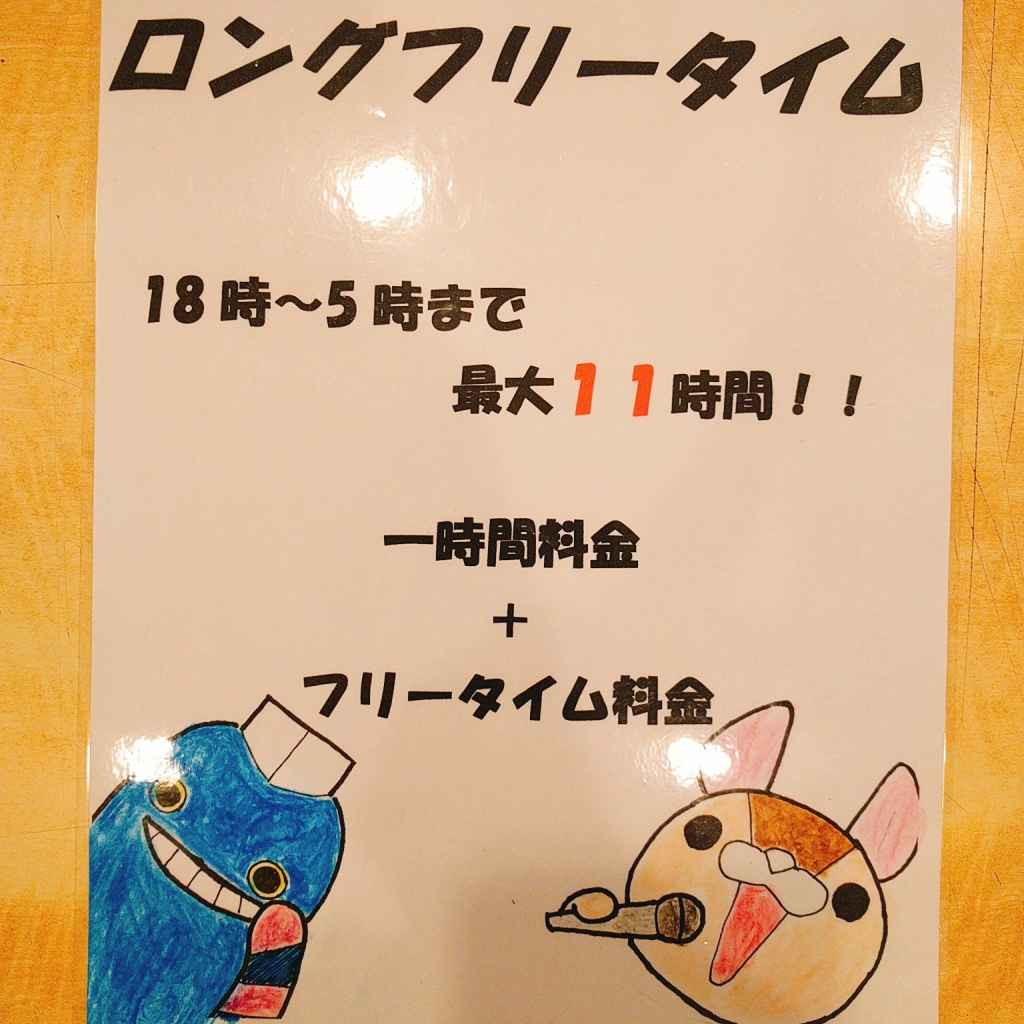 ロングフリータイム
18時～5時まで
最大11時間！！
一時間料金
＋
フリータイム料金